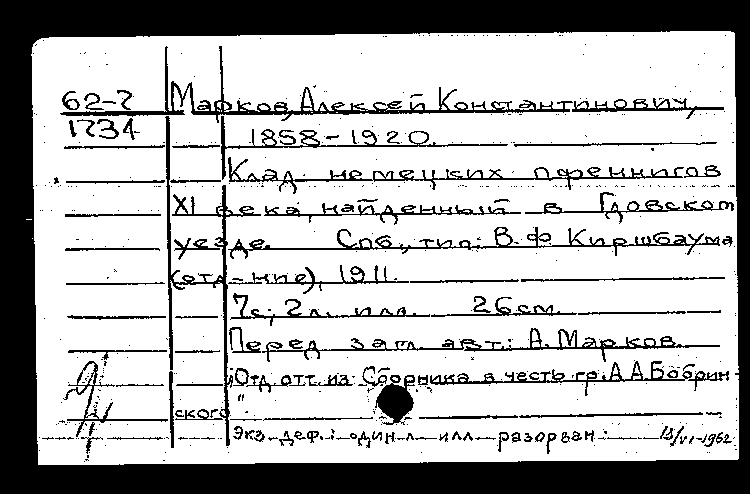 62-2 Марков, Алексей Константинович,
1234 1858-1920.
Клад немецких пфеннигов
XI века, найденный в Гдовском
уезде. Спб., тип: В.Ф. Киршбаума
(отд-ние), 1911.
7с; 2л. илл. 26см.
Перед загл. авт.: А. Марков.
"Отд. отт. из Сборника в честь гр. А.А. Бобрин-
ского".
Экз. деф.: один л. илл. разорван. 13/VI-1962